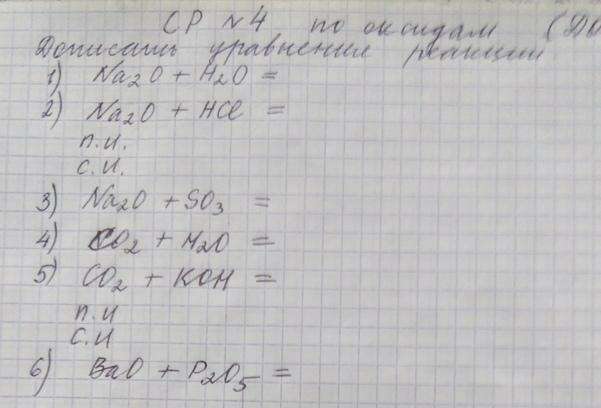 СР №4 по оксидам
Дописать уравнения реакции
1) Na₂O + H₂O =
2) Na₂O + HCl =
п.и.
с.и.
3) Na₂O + SO₃ =
4) CO₂ + H₂O =
5) CO₂ + KOH =
п.и
с.и
6) BaO + P₂O₅ =